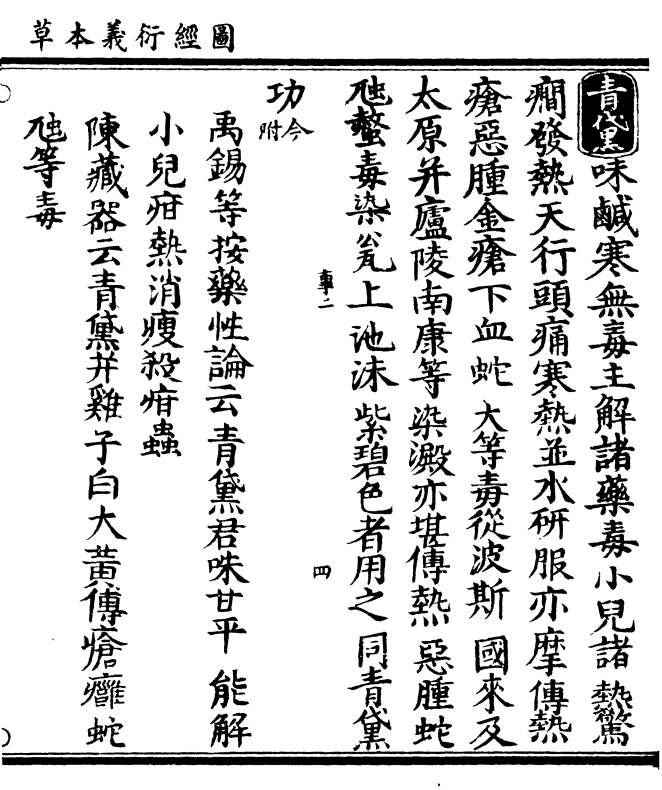 圖經衍義本草
青黛 味鹹寒無毒主解諸藥毒小兒諸熱驚
癇發熱天行頭痛寒熱並水研服亦摩傅熱
瘡惡腫金瘡下血蛇犬等毒從波斯國來及
太原并廬陵南康等染澱亦堪傅熱惡腫蛇
虺螫毒染瓮上池沫紫碧色者用之同青黛
功今附
禹錫等按藥性論云青黛君味甘平能解
小兒疳熱消瘦殺疳蟲
陳藏器云青黛并雞子白大黃傅瘡癰蛇
虺等毒